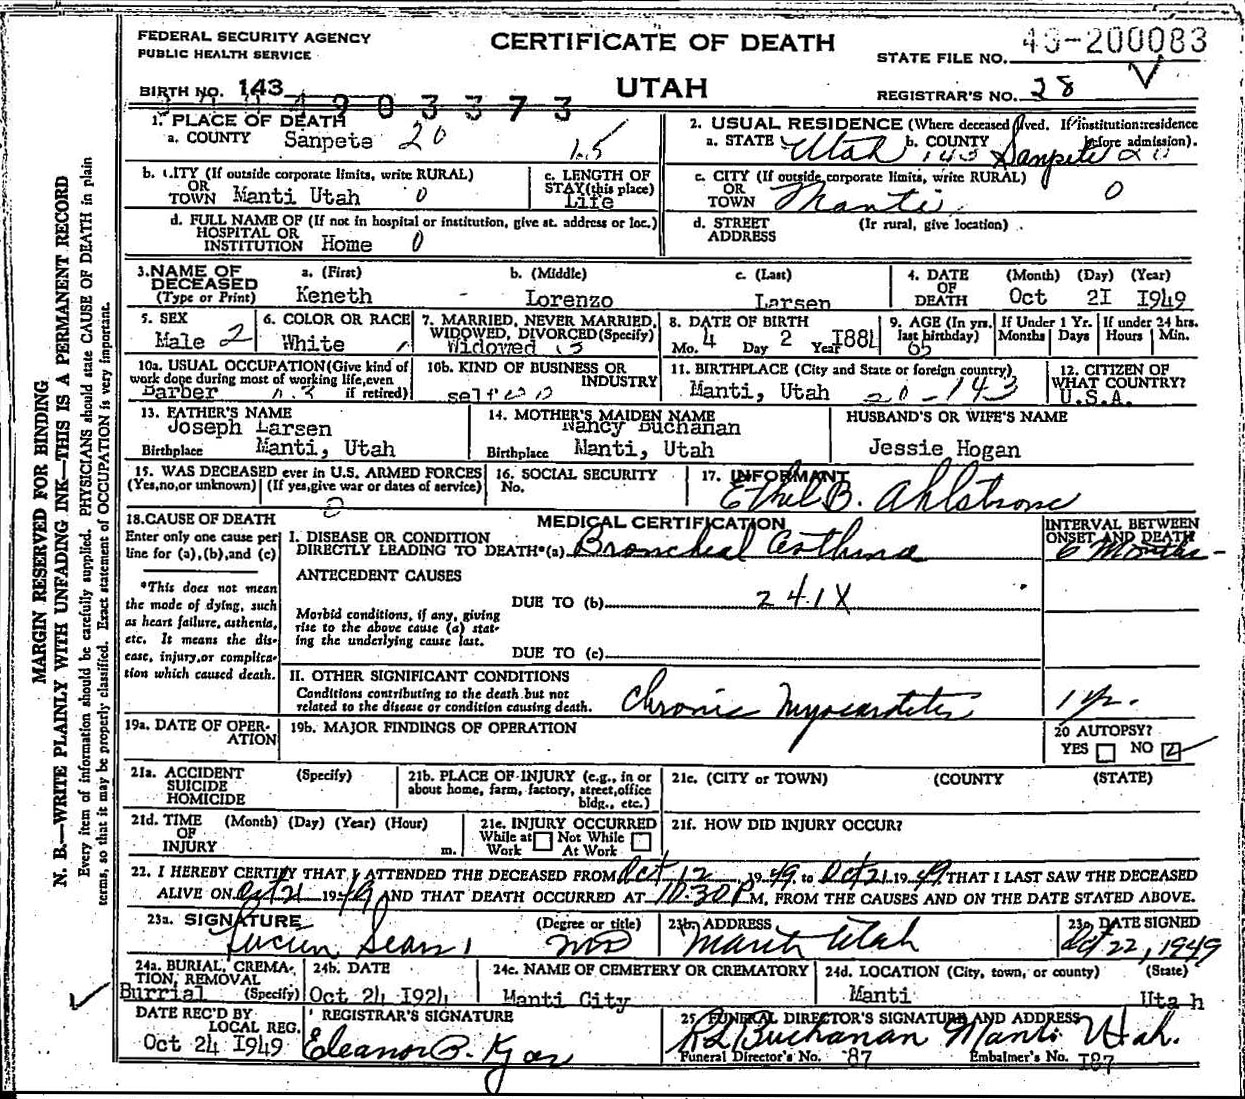 FEDERAL SECURITY AGENCY
PUBLIC HEALTH SERVICE
CERTIFICATE OF DEATH
UTAH
STATE FILE NO. 49-200083
BIRTH NO. 143
REGISTRAR'S NO. 28
4903373
1. PLACE OF DEATH
a. COUNTY Sanpete 20
15
2. USUAL RESIDENCE (Where deceased lived. If institution:residence before admission).
a. STATE Utah b. COUNTY 143 Sanpete 20
b. CITY (If outside corporate limits, write RURAL)
OR
TOWN Manti Utah 0
c. LENGTH OF
STAY(this place)
Life
c. CITY (If outside corporate limits, write RURAL)
OR
TOWN Manti 0
d. FULL NAME OF (If not in hospital or institution, give st. address or loc.)
HOSPITAL OR
INSTITUTION Home 0
d. STREET (If rural, give location)
ADDRESS
3. NAME OF DECEASED
(Type or Print)
a. (First) b. (Middle) c. (Last)
Keneth - Lorenzo Larsen
4. DATE OF DEATH
(Month) (Day) (Year)
Oct 2I I949
5. SEX
Male 2
6. COLOR OR RACE
White
7. MARRIED, NEVER MARRIED,
WIDOWED, DIVORCED(Specify)
Widowed 3
8. DATE OF BIRTH
Mo. 4 Day 2 Year I884
9. AGE (In yrs. last birthday)
65
If Under 1 Yr. Months Days
If under 24 hrs. Hours Min.
10a. USUAL OCCUPATION(Give kind of
work done during most of working life,even
if retired)
Barber
10b. KIND OF BUSINESS OR
INDUSTRY
self
11. BIRTHPLACE (City and State or foreign country)
Manti, Utah 20-143
12. CITIZEN OF
WHAT COUNTRY?
U.S.A.
13. FATHER'S NAME
Joseph Larsen
Birthplace Manti, Utah
14. MOTHER'S MAIDEN NAME
Nancy Buchanan
Birthplace Manti, Utah
HUSBAND'S OR WIFE'S NAME
Jessie Hogan
15. WAS DECEASED ever in U.S. ARMED FORCES
(Yes,no,or unknown) (If yes,give war or dates of service)
0
16. SOCIAL SECURITY
No.
17. INFORMANT
Ethel B. Ahlstrom
18.CAUSE OF DEATH
Enter only one cause per
line for (a),(b),and (c)
*This does not mean
the mode of dying, such
as heart failure, asthenia,
etc. It means the dis-
ease, injury,or complica-
tion which caused death.
MEDICAL CERTIFICATION
INTERVAL BETWEEN
ONSET AND DEATH
I. DISEASE OR CONDITION
DIRECTLY LEADING TO DEATH*(a) Bronchial Asthma
6 Months
ANTECEDENT CAUSES
DUE TO (b) 241X
Morbid conditions, if any, giving
rise to the above cause (a) stat-
ing the underlying cause last.
DUE TO (c)
II. OTHER SIGNIFICANT CONDITIONS
Conditions contributing to the death but not
related to the disease or condition causing death.
Chronic Myocarditis
1 yr.
19a. DATE OF OPER-
ATION
19b. MAJOR FINDINGS OF OPERATION
20 AUTOPSY?
YES NO
21a. ACCIDENT (Specify)
SUICIDE
HOMICIDE
21b. PLACE OF INJURY (e.g., in or
about home, farm, factory, street,office
bldg., etc.)
21c. (CITY or TOWN) (COUNTY (STATE)
21d. TIME (Month) (Day) (Year) (Hour)
OF
INJURY m.
21e. INJURY OCCURRED
While at Not While
Work At Work
21f. HOW DID INJURY OCCUR?
22. I HEREBY CERTIFY THAT I ATTENDED THE DECEASED FROM Oct 12, 1949, to Oct 21 1949 THAT I LAST SAW THE DECEASED
ALIVE ON Oct 21 1949 AND THAT DEATH OCCURRED AT 10:30 P M, FROM THE CAUSES AND ON THE DATE STATED ABOVE.
23a. SIGNATURE (Degree or title)
Lucien Sears MD
23b. ADDRESS
Manti Utah
23c. DATE SIGNED
Oct 22, 1949
24a. BURIAL, CREMA-
TION, REMOVAL
Burrial (Specify)
24b. DATE
Oct 24 I924
24c. NAME OF CEMETERY OR CREMATORY
Manti City
24d. LOCATION (City, town, or county) (State)
Manti Utah
DATE REC'D BY
LOCAL REG.
Oct 24 I949
REGISTRAR'S SIGNATURE
Eleanor B. Kjar
25. FUNERAL DIRECTOR'S SIGNATURE AND ADDRESS
RL Buchanan Manti Utah.
Funeral Director's No. 87 Embalmer's No. I87
MARGIN RESERVED FOR BINDING
N. B.—WRITE PLAINLY WITH UNFADING INK—THIS IS A PERMANENT RECORD
Every item of information should be carefully supplied. PHYSICIANS should state CAUSE OF DEATH in plain
terms, so that it may be properly classified. Exact statement of OCCUPATION is very important.